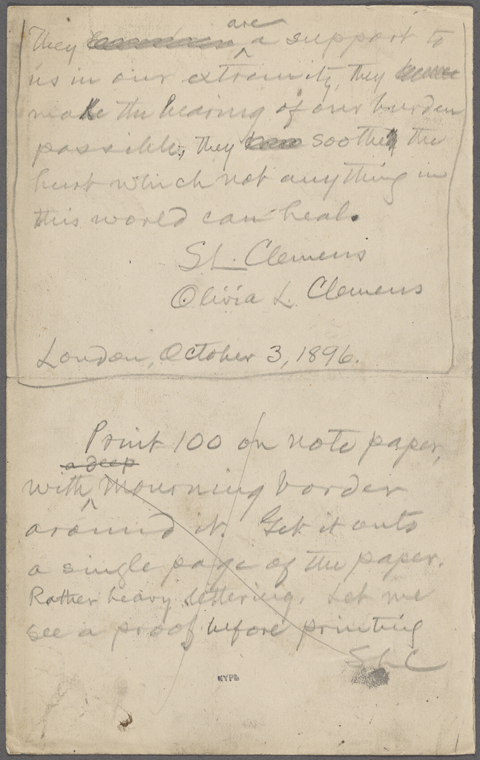 are
They a support to
us in our extremity, they
make the bearing of our burden
possible, they soothe the
hurt which not anything in
this world can heal.
S L. Clemens
Olivia L. Clemens
London, October 3, 1896.
Print 100 on note paper,
a deep
with mourning border
around it. Get it onto
a single page of the paper.
Rather heavy lettering. Let me
see a proof before printing
S L C
NYPL